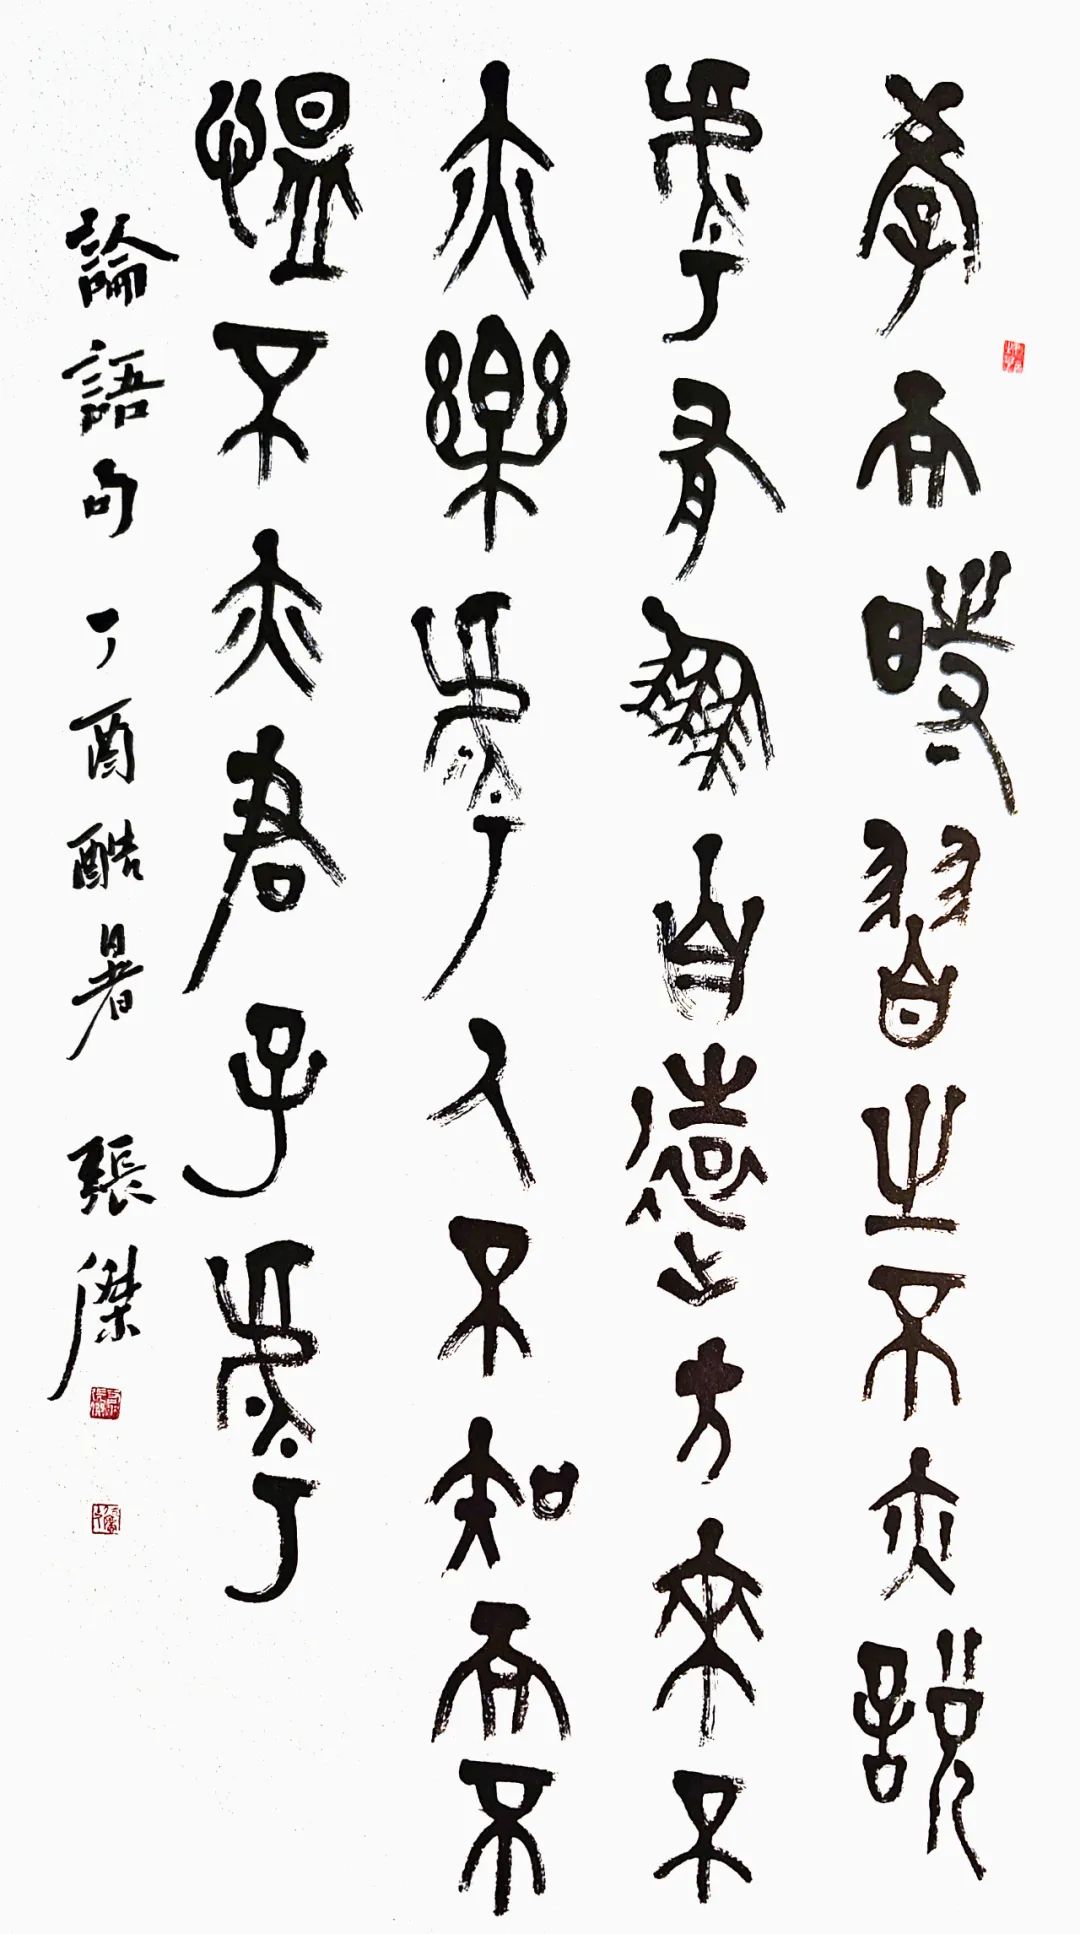 學而時習之不亦說
乎有朋自遠方來不
亦樂乎人不知而不
慍不亦君子乎
論語句 丁酉酷暑 張傑